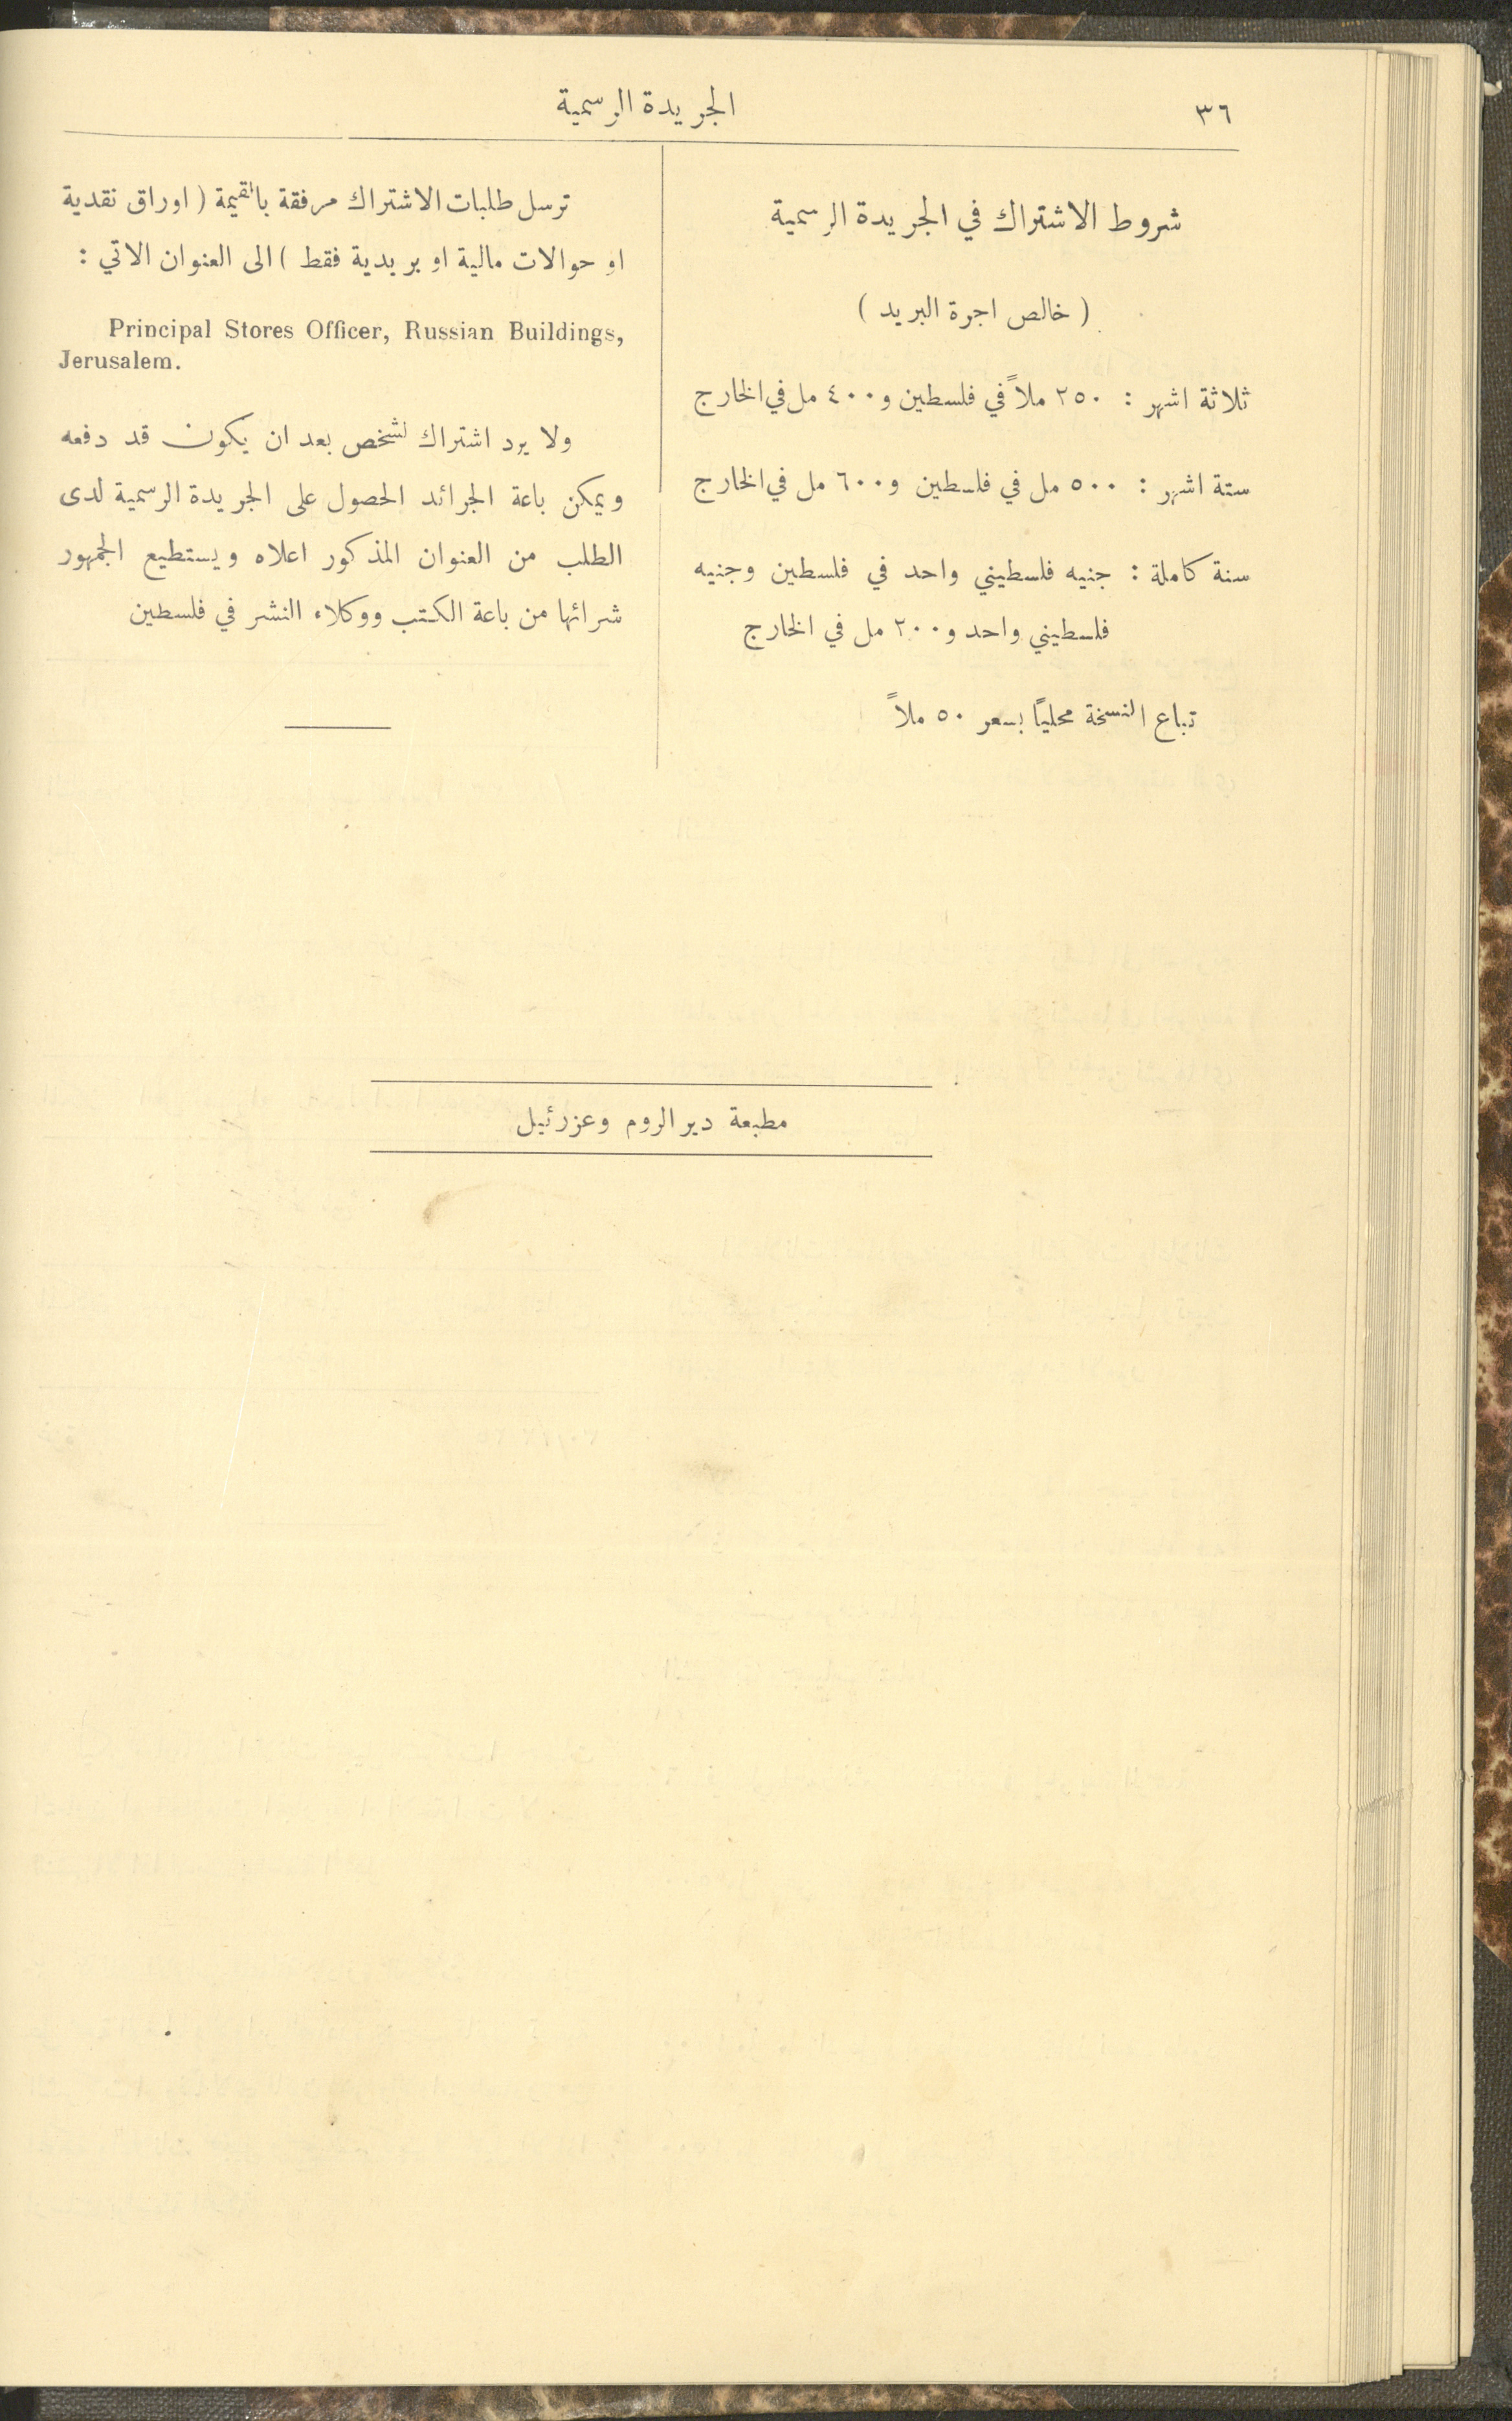 ٣٦
الجريدة الرسمية
شروط الاشتراك في الجريدة الرسمية
( خالص اجرة البريد )
ثلاثة اشهر : ٢٥٠ ملاً في فلسطين و٤٠٠ مل في الخارج
ستة اشهر : ٥٠٠ مل في فلسطين و٦٠٠ مل في الخارج
سنة كاملة : جنيه فلسطيني واحد في فلسطين وجنيه
فلسطيني واحد و٢٠٠ مل في الخارج
تباع النسخة محلياً بسعر ٥٠ ملاً
ترسل طلبات الاشتراك مرفقة بالقيمة ( اوراق نقدية
او حوالات مالية او بريدية فقط ) الى العنوان الاتي :
Principal Stores Officer, Russian Buildings,
Jerusalem.
ولا يرد اشتراك لشخص بعد ان يكون قد دفعه
ويمكن باعة الجرائد الحصول على الجريدة الرسمية لدى
الطلب من العنوان المذكور اعلاه ويستطيع الجمهور
شرائها من باعة الكتب ووكلاء النشر في فلسطين
مطبعة دير الروم وعزرئيل